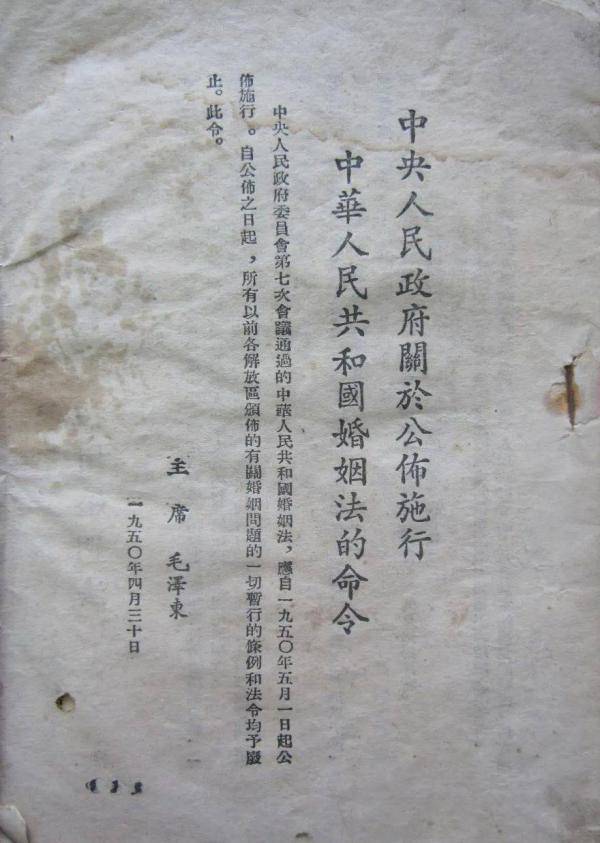 中央人民政府關於公佈施行
中華人民共和國婚姻法的命令
中央人民政府委員會第七次會議通過的中華人民共和國婚姻法，應自一九五〇年五月一日起公
佈施行。自公佈之日起，所有以前各解放區頒佈的有關婚姻問題的一切暫行的條例和法令均予廢
止。此令。
主席 毛澤東
一九五〇年四月三十日